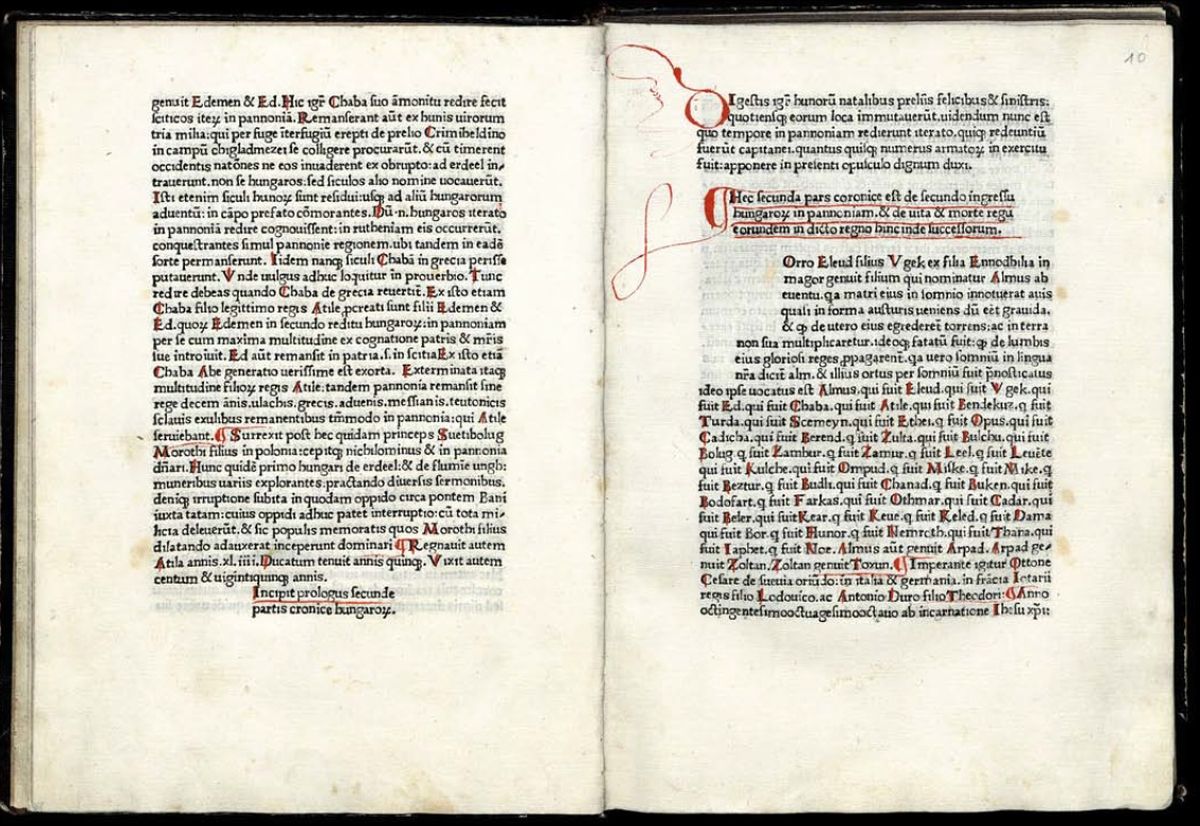 genuit Edemen & Ed. Hic igr̃ Chaba suo āmonitu redire fecit
sciticos iteꝝ in pannoniã. Remanserant aūt ex hunis uirorum
tria milia: qui per fuge īterfugiū erepti de prelio Crimiheldino
in campū chigladmezei se colligere procurarūt. & cū timerent
occidentis natōnes ne eos inuaderent ex obrupto: ad erdeel in-
trauerunt. non se hungaros: sed siculos alio nomine uocauerūt.
Isti etenim siculi hunoꝝ sunt residui: usqꝫ ad aliū hungarorum
aduentū: in cãpo prefato cōmorantes. Dū .n. hungaros iterato
in pannoniã redire cognouissent: in rutheniam eis occurrerūt.
conquestrantes simul pannonie regionem. ubi tandem in eadē
sorte permanserunt. Iidem nanqꝫ siculi Chabã in grecia perisse
putauerunt. Vnde uulgus adhuc loquitur in prouerbio. Tunc
redire debeas quando Chaba de grecia reuertit̃. Ex isto etiam
Chaba filio legittimo regis Atile ꝓcreati sunt filii Edemen &
Ed. quoꝝ Edemen in secundo reditu hungaroꝝ: in pannoniam
per se cum maxima multitudine ex cognatione patris & mr̃is
sue introiuit. Ed aūt remansit in patria .s. in scitia Ex isto etiã
Chaba Abe generatio uerissime est exorta. Exterminata itaqꝫ
multitudine filioꝝ regis Atile: tandem pannonia remansit sine
rege decem ānis. ulachis. grecis. aduenis. messianis. teutonicis
sclauis exulibus remanentibus tm̄modo in pannonia: qui Atile
seruiebant. ¶ Surrexit post hec quidam princeps Suetibolug
Morothi filius in polonia: cepitqꝫ nichilominus & in pannonia
dñari. Hunc quidē primo hungari de erdeel: & de flumie ungh:
muneribus uariis explorantes: practando diuersis sermonibus.
deniqꝫ irruptione subita in quodam oppido circa pontem Bani
iuxta tatam: cuius oppidi adhuc patet interruptio: cū tota mi-
licia deleuerūt. & sic populis memoratis quos Morothi filius
dilatando adauxerat inceperunt dominari ¶ Regnauit autem
Atila annis .xl. iiii. Ducatum tenuit annis quinqꝫ. Vixit autem
centum & uigintiquinqꝫ annis.
Incipit prologus secunde
partis cronice hungaroꝝ.
10
DIgestis igr̃ hunorū natalibus preliis felicibus & sinistris:
quotiensqꝫ eorum loca immutauerūt. uidendum nunc est
quo tempore in pannoniam redierunt iterato. quiqꝫ redeuntiū
fuerūt capitanei. quantus quisqꝫ numerus armatoꝝ in exercitu
fuit: apponere in presenti opusculo dignum duxi.
¶ Hec secunda pars coronice est de secundo ingressu
hungaroꝝ in pannoniam. & de uita & morte regū
eorundem in dicto regno hinc inde successorum.
Orro Eleud filius Vgek ex filia Ennodbilia in
magor genuit filium qui nominatur Almus ab
euentu. qa matri eius in somnio innotuerat auis
quasi in forma austuris ueniens dū eēt grauida.
& qꝫ de utero eius egrederet̃ torrens: ac in terra
non sua multiplicaretur. ideoqꝫ fatatū fuit: qꝫ de lumbis
eius gloriosi reges ꝓpagarent̃. qa uero somniū in lingua
nr̃a dicit̃ alm. & illius ortus per somniū fuit p̄nosticatus
ideo ipse uocatus est Almus. qui fuit Eleud. qui fuit Vgek. qui
fuit Ed. qui fuit Chaba. qui fuit Atile. qui fuit Bendekuz. q̇ fuit
Turda. qui fuit Scemeyn. q̇ fuit Ethei. q̇ fuit Opus. qui fuit
Cadicha. qui fuit Berend. q̇ fuit Zulta. qui fuit Bulchu. qui fuit
Bolug. q̇ fuit Zambur. q̇ fuit Zamur. q̇ fuit Leel. q̇ fuit Leuēte
qui fuit Kulche. qui fuit Ompud. q̇ fuit Miske. q̇ fuit Mike. q̇
fuit Beztur. q̇ fuit Budli. q̇ fuit Chanad. q̇ fuit Buken. qui fuit
Bodofart. q̇ fuit Farkas. qui fuit Othmar. qui fuit Cadar. qui
fuit Beler. qui fuit Kear. q̇ fuit Keue. q̇ fuit Keled. q̇ fuit Dama
qui fuit Bor. q̇ fuit Hunor. q̇ fuit Nemroth. qui fuit Thana. qui
fuit Iaphet. q̇ fuit Noe. Almus aūt genuit Arpad. Arpad ge-
nuit Zoltan. Zoltan genuit Toxun. ¶ Imperante igitur Ottone
Cesare de sueuia oriūdo: in italia & germania. in frãcia Iotarii
regis filio Lodouico. ac Antonio Duro filio Theodori: ¶ Anno
octingentesimooctuagesimooctauo ab incarnatione Ihesu xp̄i: